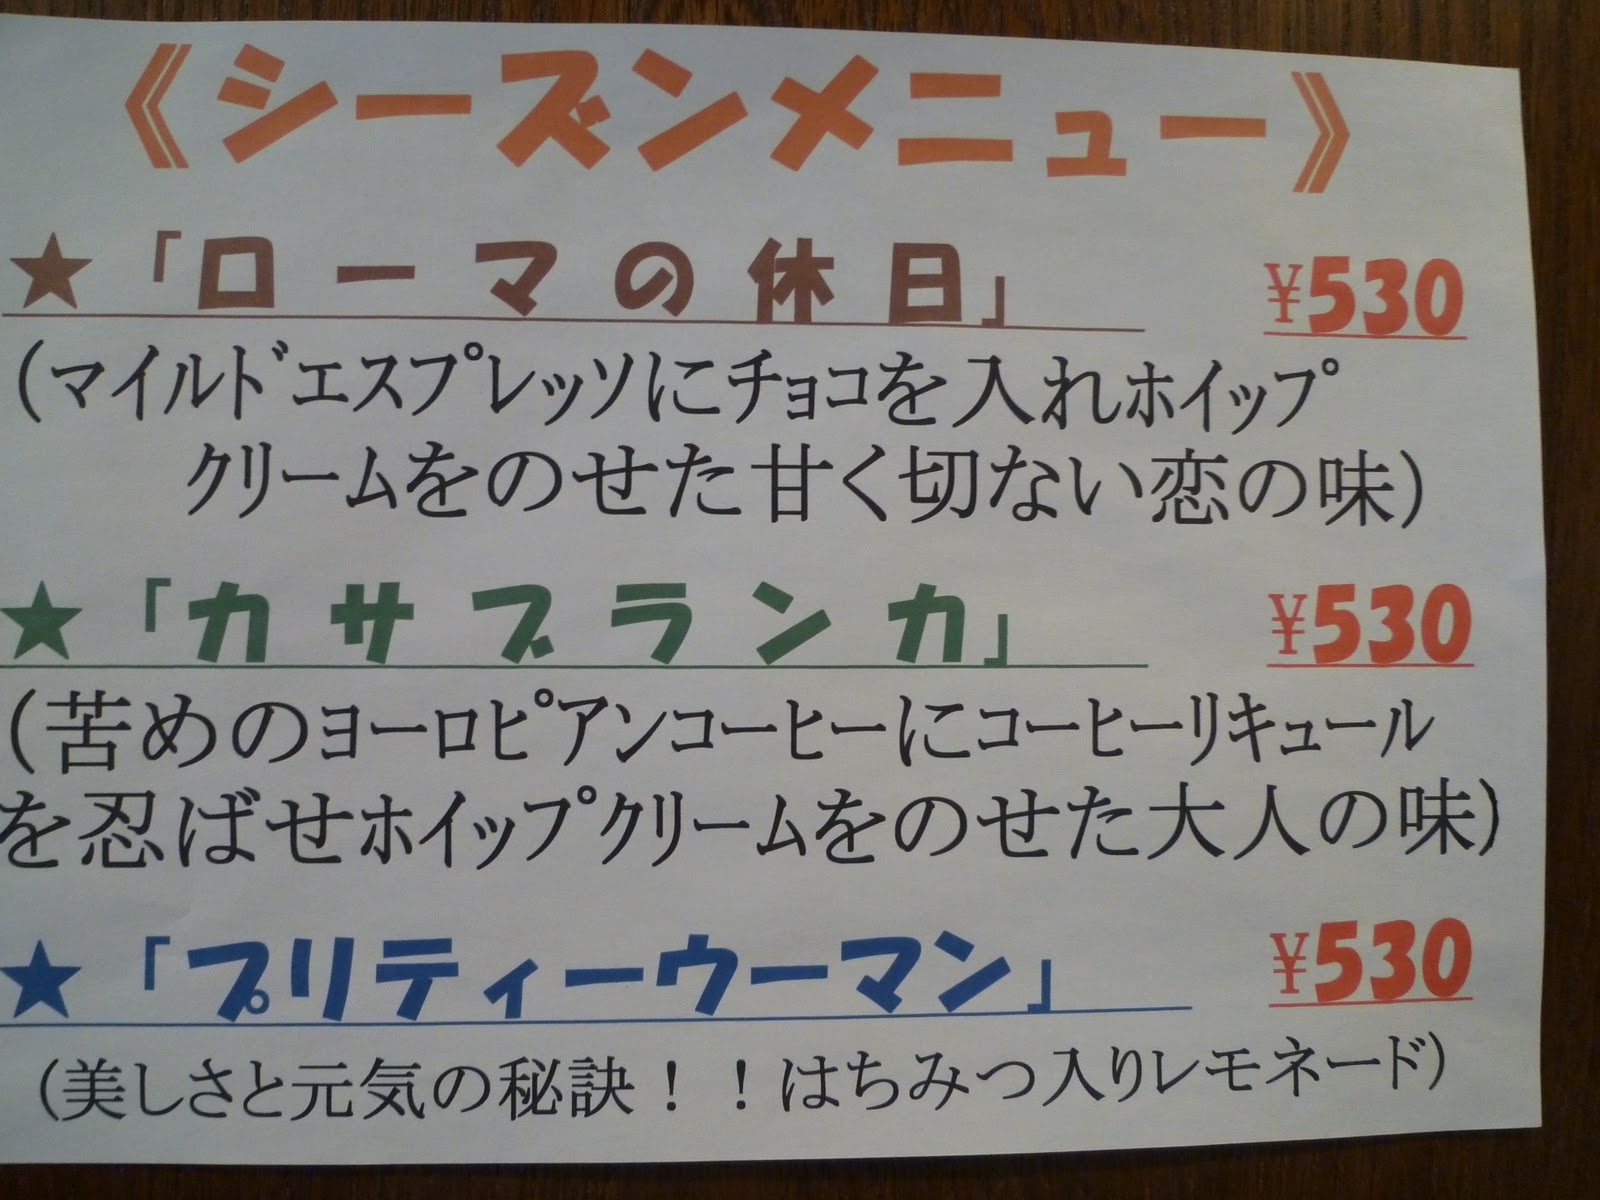 《シーズンメニュー》
★「ローマの休日」 ¥530
(マイルドエスプレッソにチョコを入れホイップ
クリームをのせた甘く切ない恋の味)
★「カサブランカ」 ¥530
(苦めのヨーロピアンコーヒーにコーヒーリキュール
を忍ばせホイップクリームをのせた大人の味)
★「プリティーウーマン」 ¥530
(美しさと元気の秘訣!!はちみつ入りレモネード)